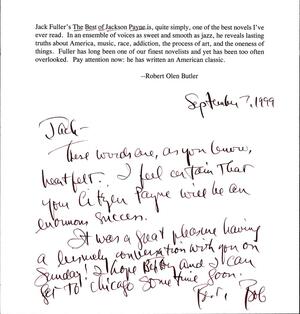 Jack Fuller's The Best of Jackson Payne is, quite simply, one of the best novels I've
ever read. In an ensemble of voices as sweet and smooth as jazz, he reveals lasting
truths about America, music, race, addiction, the process of art, and the oneness of
things. Fuller has long been one of our finest novelists and yet has been too often
overlooked. Pay attention now: he has written an American classic.
--Robert Olen Butler
September 7, 1999
Jack–
These words are, as you know,
heartfelt. I feel certain that
your Citizen Payne will be an
enormous success.
It was a great pleasure having
a leisurely conversation with you on
Sunday! I hope and I can
get to Chicago some time soon.
Best, Bob